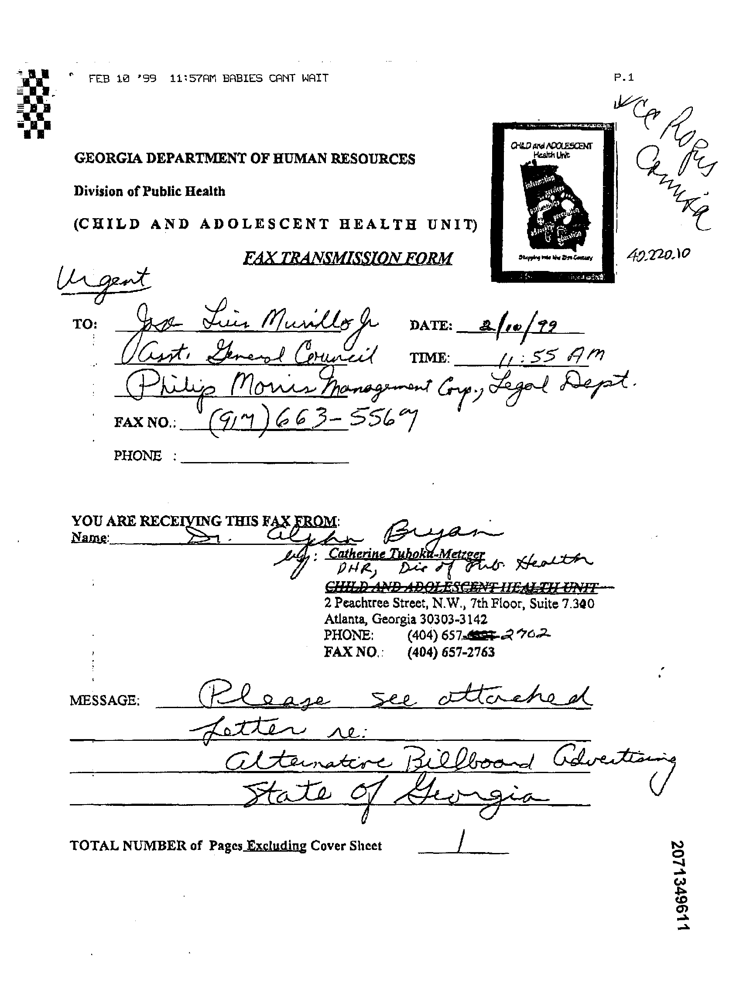 FEB 10 '99 11:57AM BABIES CANT WAIT P.1
cc Rogus
Camisa
GEORGIA DEPARTMENT OF HUMAN RESOURCES
Division of Public Health
(CHILD AND ADOLESCENT HEALTH UNIT)
CHILD and ADOLESCENT
Health Unit
Stepping into the 21st Century
FAX TRANSMISSION FORM
40.220.10
Urgent
TO: Jose Luis Murillo Jr DATE: 2/10/99
Asst. General Council TIME: 11:55 AM
Philip Morris Management Corp., Legal Dept.
FAX NO.: (917) 663-5569
PHONE :
YOU ARE RECEIVING THIS FAX FROM:
Name: Dr. Bryan
Catherine Tuboku-Metzger
DHR, Dir of Pub. Health
CHILD AND ADOLESCENT HEALTH UNIT
2 Peachtree Street, N.W., 7th Floor, Suite 7.300
Atlanta, Georgia 30303-3142
PHONE: (404) 657-2702
FAX NO.: (404) 657-2763
MESSAGE: Please see attached
Letter re:
Alternative Billboard Advertising
State of Georgia
TOTAL NUMBER of Pages Excluding Cover Sheet 1
2071349611